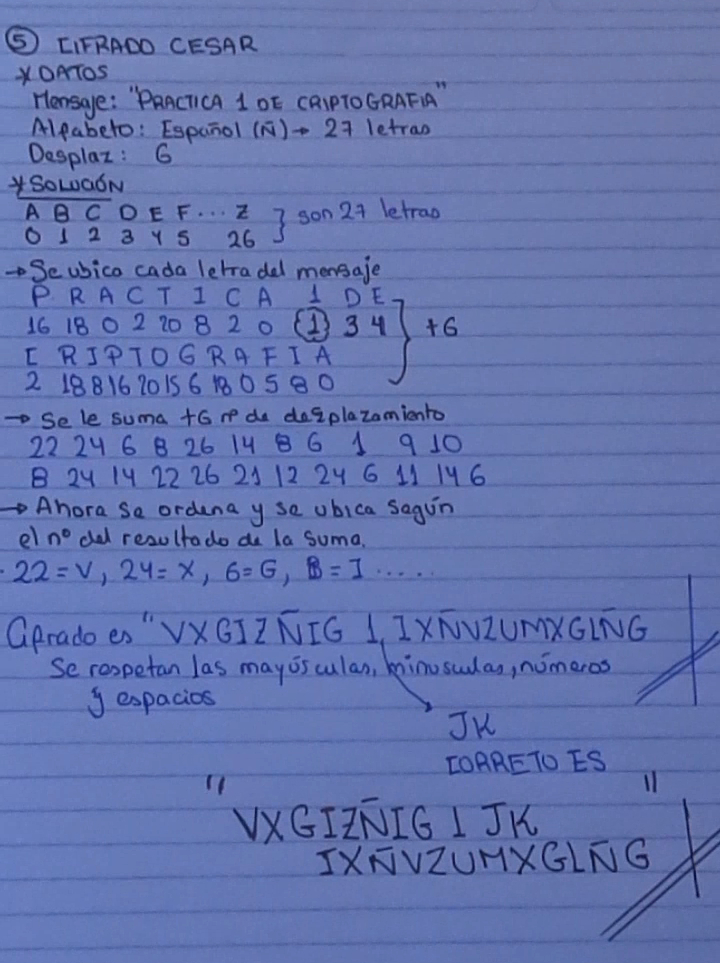 ⑤ CIFRADO CESAR
* DATOS
Mensaje: "PRACTICA 1 DE CRIPTOGRAFIA"
Alfabeto: Español (Ñ) → 27 letras
Desplaz: 6
* SOLUCIÓN
A B C D E F... Z } son 27 letras
0 1 2 3 4 5 26
→ Se ubica cada letra del mensaje
P R A C T I C A 1 D E
16 18 0 2 20 8 2 0 (1) 3 4 } +6
C R I P T O G R A F I A
2 18 8 16 20 15 6 18 0 5 8 0
→ Se le suma +6 nº de desplazamiento
22 24 6 8 26 14 8 6 1 9 10
8 24 14 22 26 21 12 24 6 11 14 6
→ Ahora se ordena y se ubica según
el nº del resultado de la suma.
· 22 = V, 24 = X, 6 = G, 8 = I .....
Cifrado es "VXGIZÑIG 1, IXÑVZUMXGLÑG
Se respetan las mayúsculas, minusculas, números
y espacios
JK
CORRETO ES
"VXGIZÑIG 1 JK
IXÑVZUMXGLÑG"